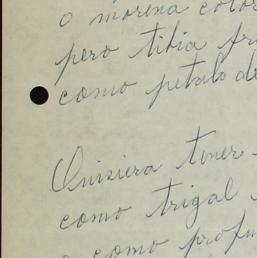 o morena color
pero tibia fr
como petalo de
Quisiera tener
como trigal
o como profun